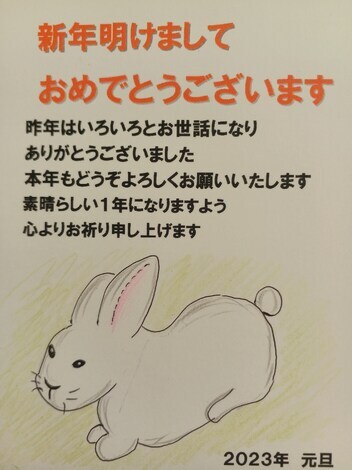 新年明けまして
おめでとうございます
昨年はいろいろとお世話になり
ありがとうございました
本年もどうぞよろしくお願いいたします
素晴らしい1年になりますよう
心よりお祈り申し上げます
2023年 元旦